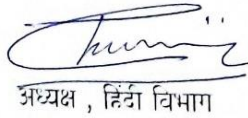 अध्यक्ष , हिंदी विभाग